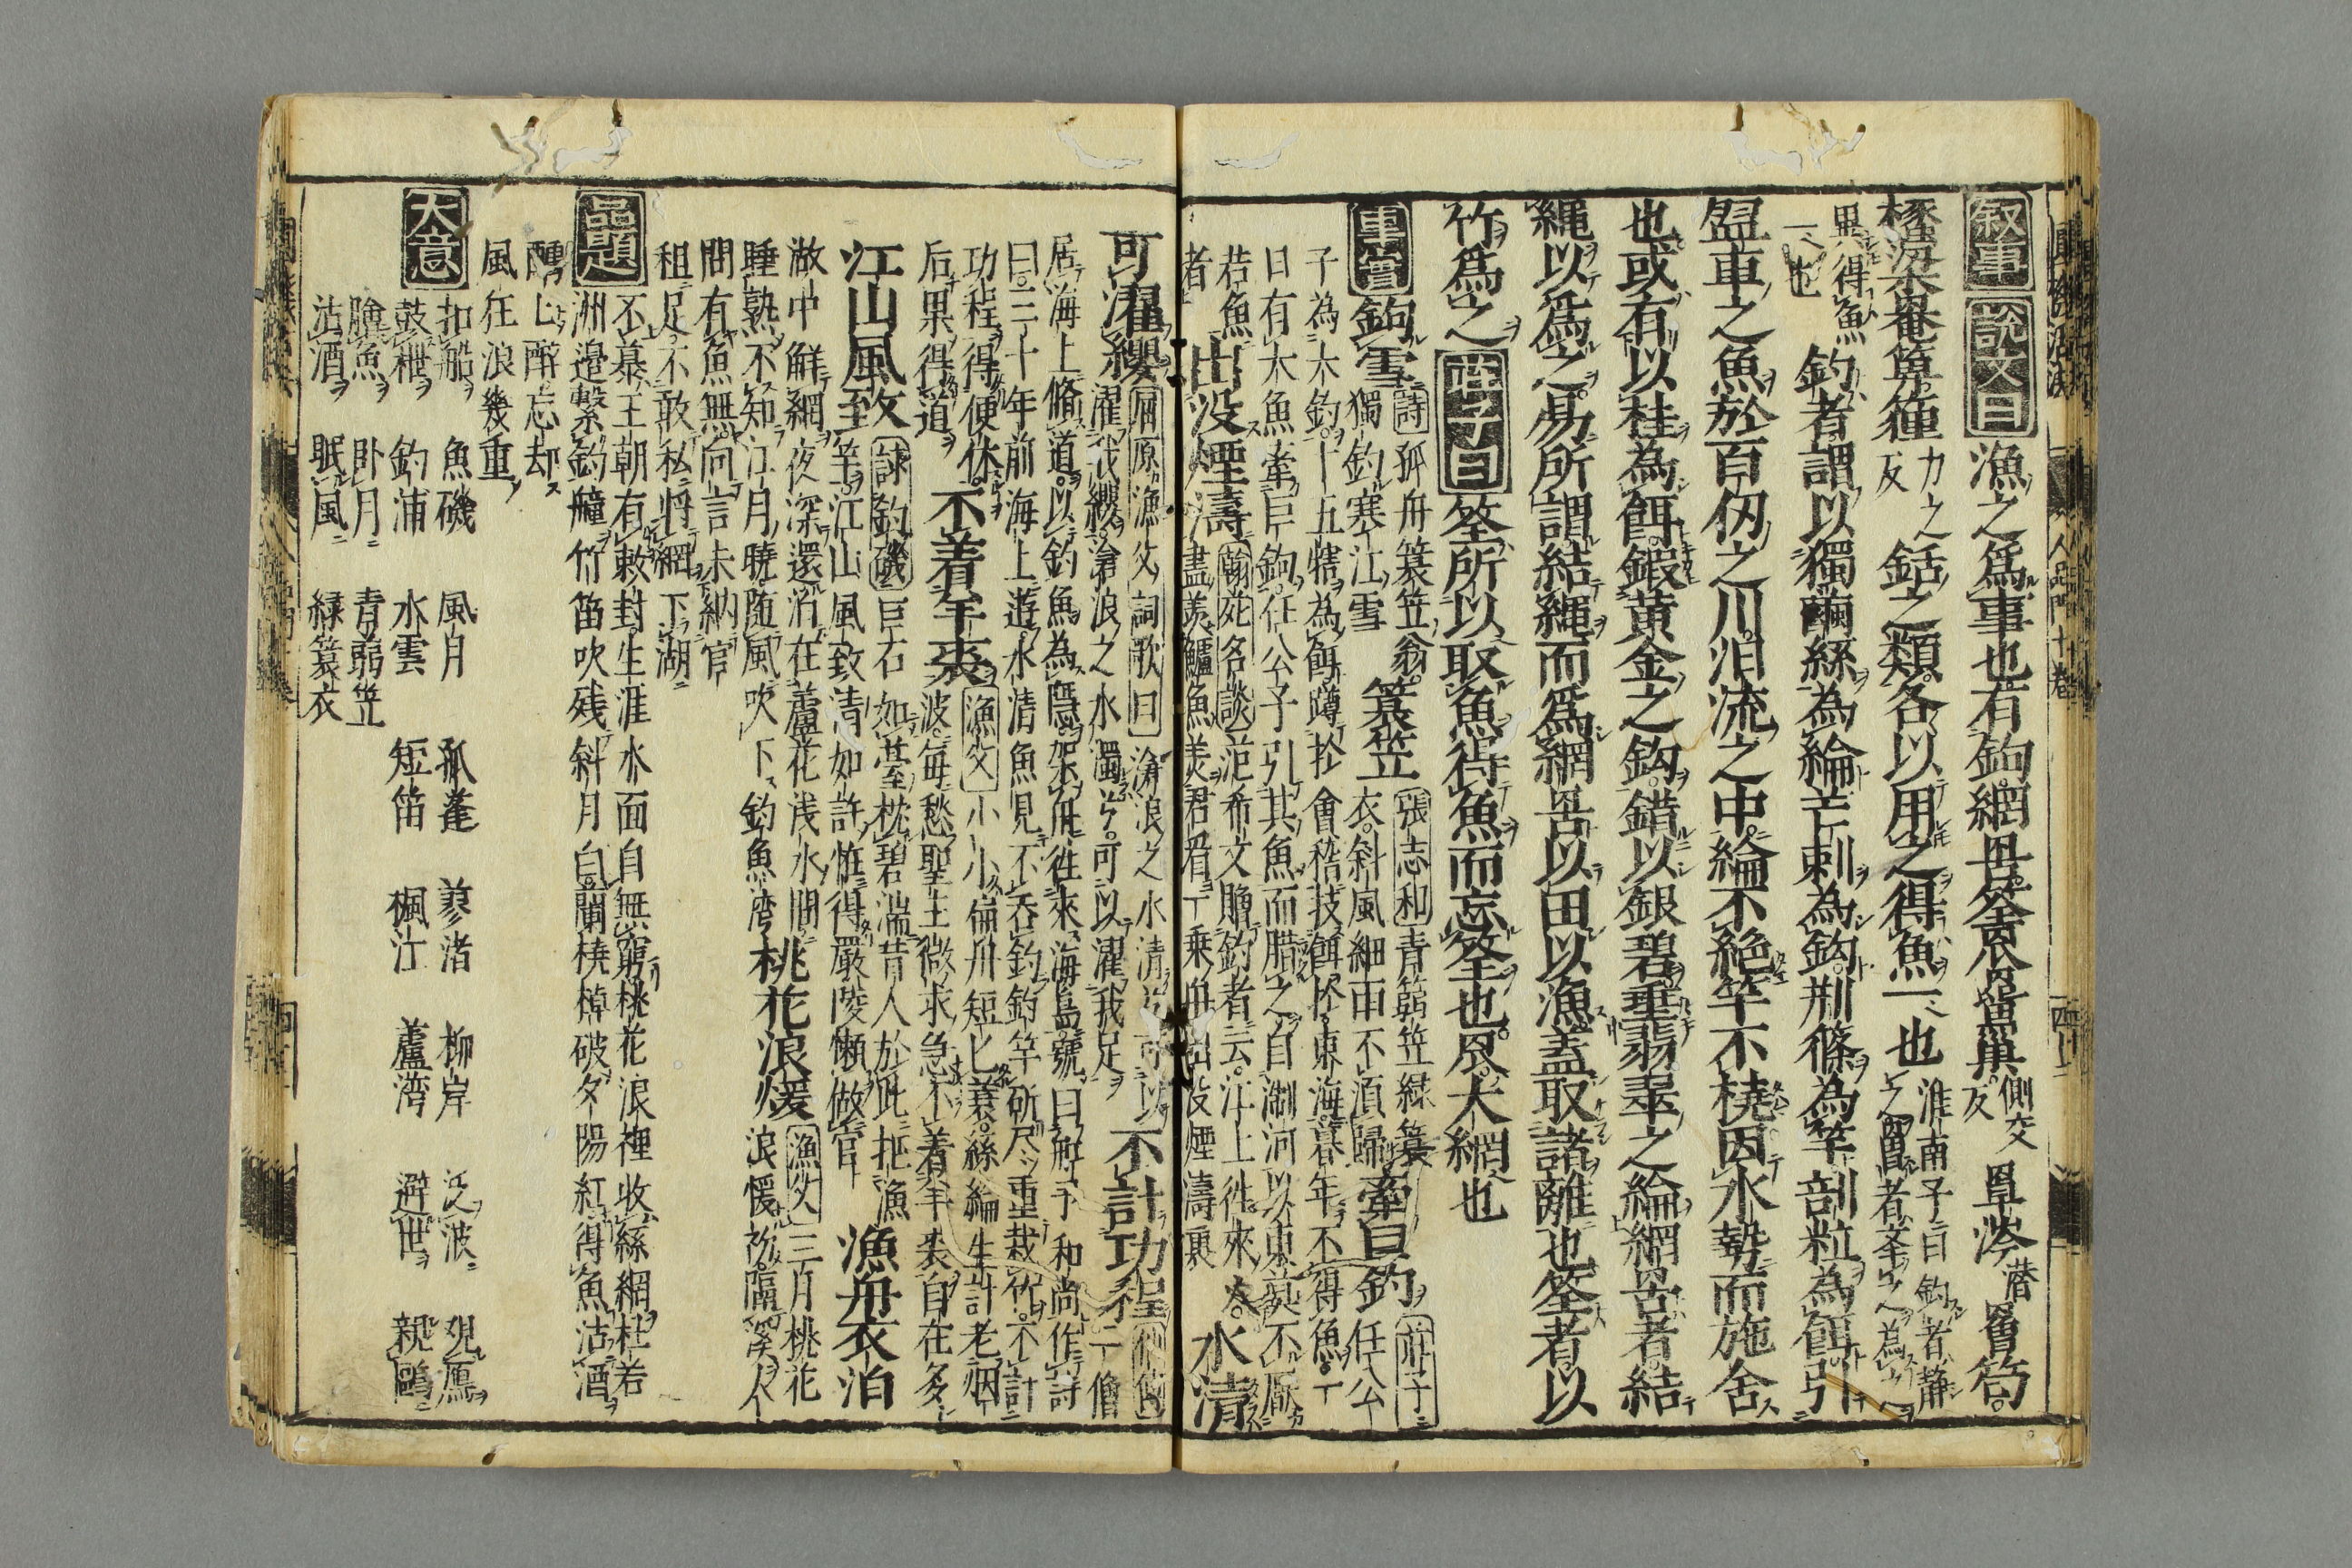 叙事 説文曰 漁之爲事也有鉤網罟筌罛罶罺側交反罩涔潜罾笱
也或有以桂為餌鍛黄金之鈎錯以銀碧垂翡翠之綸網罟者結
繩以爲之易所謂結繩而爲網罟以田以漁蓋取諸離也筌者以
竹爲之 莊子曰 筌所以取魚得魚而忘筌也罛大網也
異得魚一也 釣者謂以獨繭絲為綸芒刺為鈎荆篠為竿剖粒為餌引
盈車之魚於百仭之川汨流之中綸不絶竿不撓因水勢而施舍
事實 鉤雪 詩 孤舟簑笠翁獨釣寒江雪 簑笠 張志和 青篛笠緑簑衣斜風細雨不湏歸 牽巨釣 莊子 任公
子為大釣五十犗為餌蹲於會稽投餌於東海暮年不得魚一
日有大魚牽巨鉤任公子引其魚而腊之自淛河以東莫不厭
若魚者 出没煙濤 翰苑名談 范希文贈釣者云江上徃來人
盡羨鱸魚美君看一乗舟出没煙濤裏 水清
可濯纓 屈原漁父詞歌曰 滄浪之水清兮可以
濯我纓滄浪之水濁兮可以濯我足 不計功程 一僧
居海上脩道以釣魚為隱架舟徃來海島號曰船子和尚作詩
曰三十年前海上遊水清魚見不呑釣釣竿斫尽重栽竹不計
功程得便休后果得道 不着羊裘 漁父 小小偏舟短匕簑絲綸生計老烟
波毎愁聖主微求急不着羊裘自在多
江山風致 詠釣磯 巨石如䑓枕碧湍昔人於此把漁
竿江山風致清如許惟得嚴陵懶做官 漁舟衣泊
敝中鮮網夜深還泊在蘆花浅水間 桃花浪煖 漁父 三月桃花
睡熟不知江月曉随風吹下釣魚湾
間有魚無向言未納官
租足不敢私将網下湖
品題 不慕王朝有敕封生涯水面自無窮桃花浪裡收絲網杜若
洲邉繫釣艟竹笛吹残斜月白蘭橈棹破夕陽紅得魚沽酒
醺匕醉忘却
風任浪幾重
大意 扣船 魚磯 風月 孤蓬 蓼渚 柳岸 泛波 覌鴈
鼓枻 釣浦 水雲 短笛 楓江 蘆湾 避世 親鷗
膾魚 卧月 青蒻笠
沽酒 眠風 緑簑衣